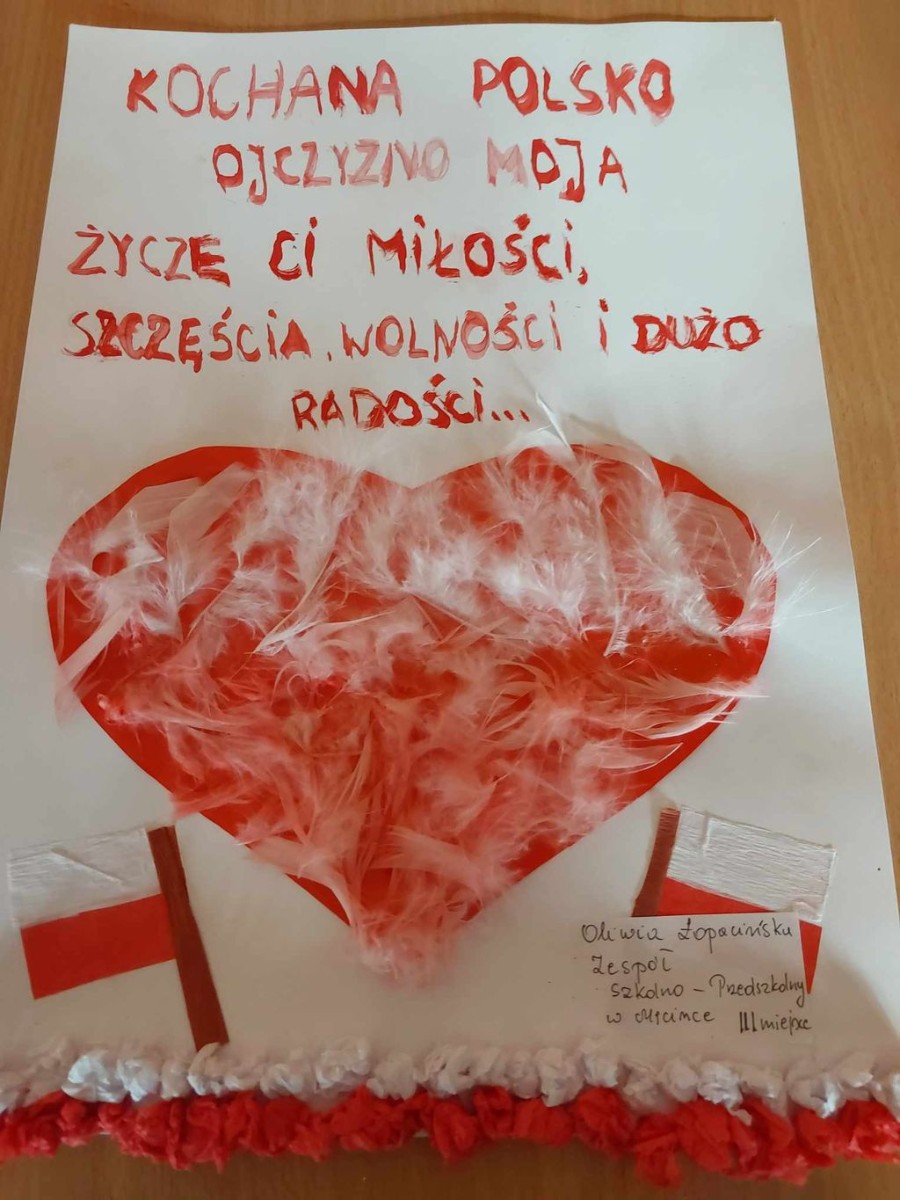 KOCHANA POLSKO
OJCZYZNO MOJA
ŻYCZĘ CI MIŁOŚCI,
SZCZĘŚCIA, WOLNOŚCI I DUŻO
RADOŚCI...
Oliwia Łopacińska
Zespół
Szkolno - Przedszkolny
w Mcimce III miejsce